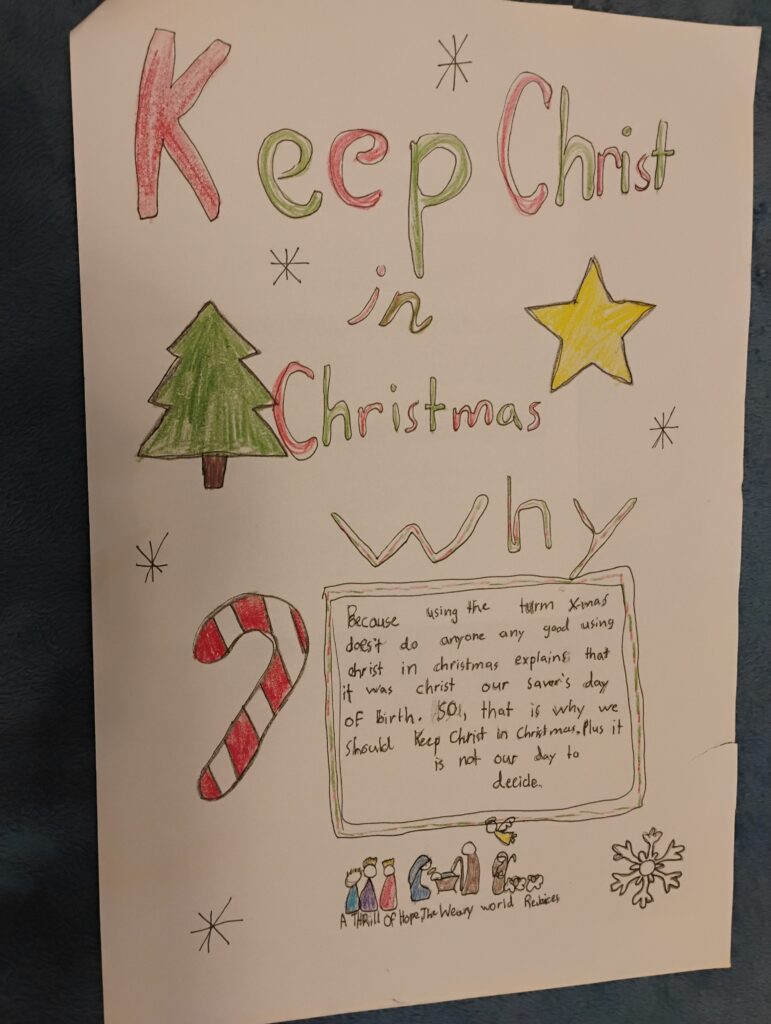 Keep Christ
in
Christmas
Why
Because using the turm X-mas
does't do anyone any good using
christ in christmas explains that
it was christ our saver's day
of birth. SO, that is why we
should Keep Christ in Christmas. Plus it
is not our day to
decide.
A THRill Of Hope, The Weary world Rejoices